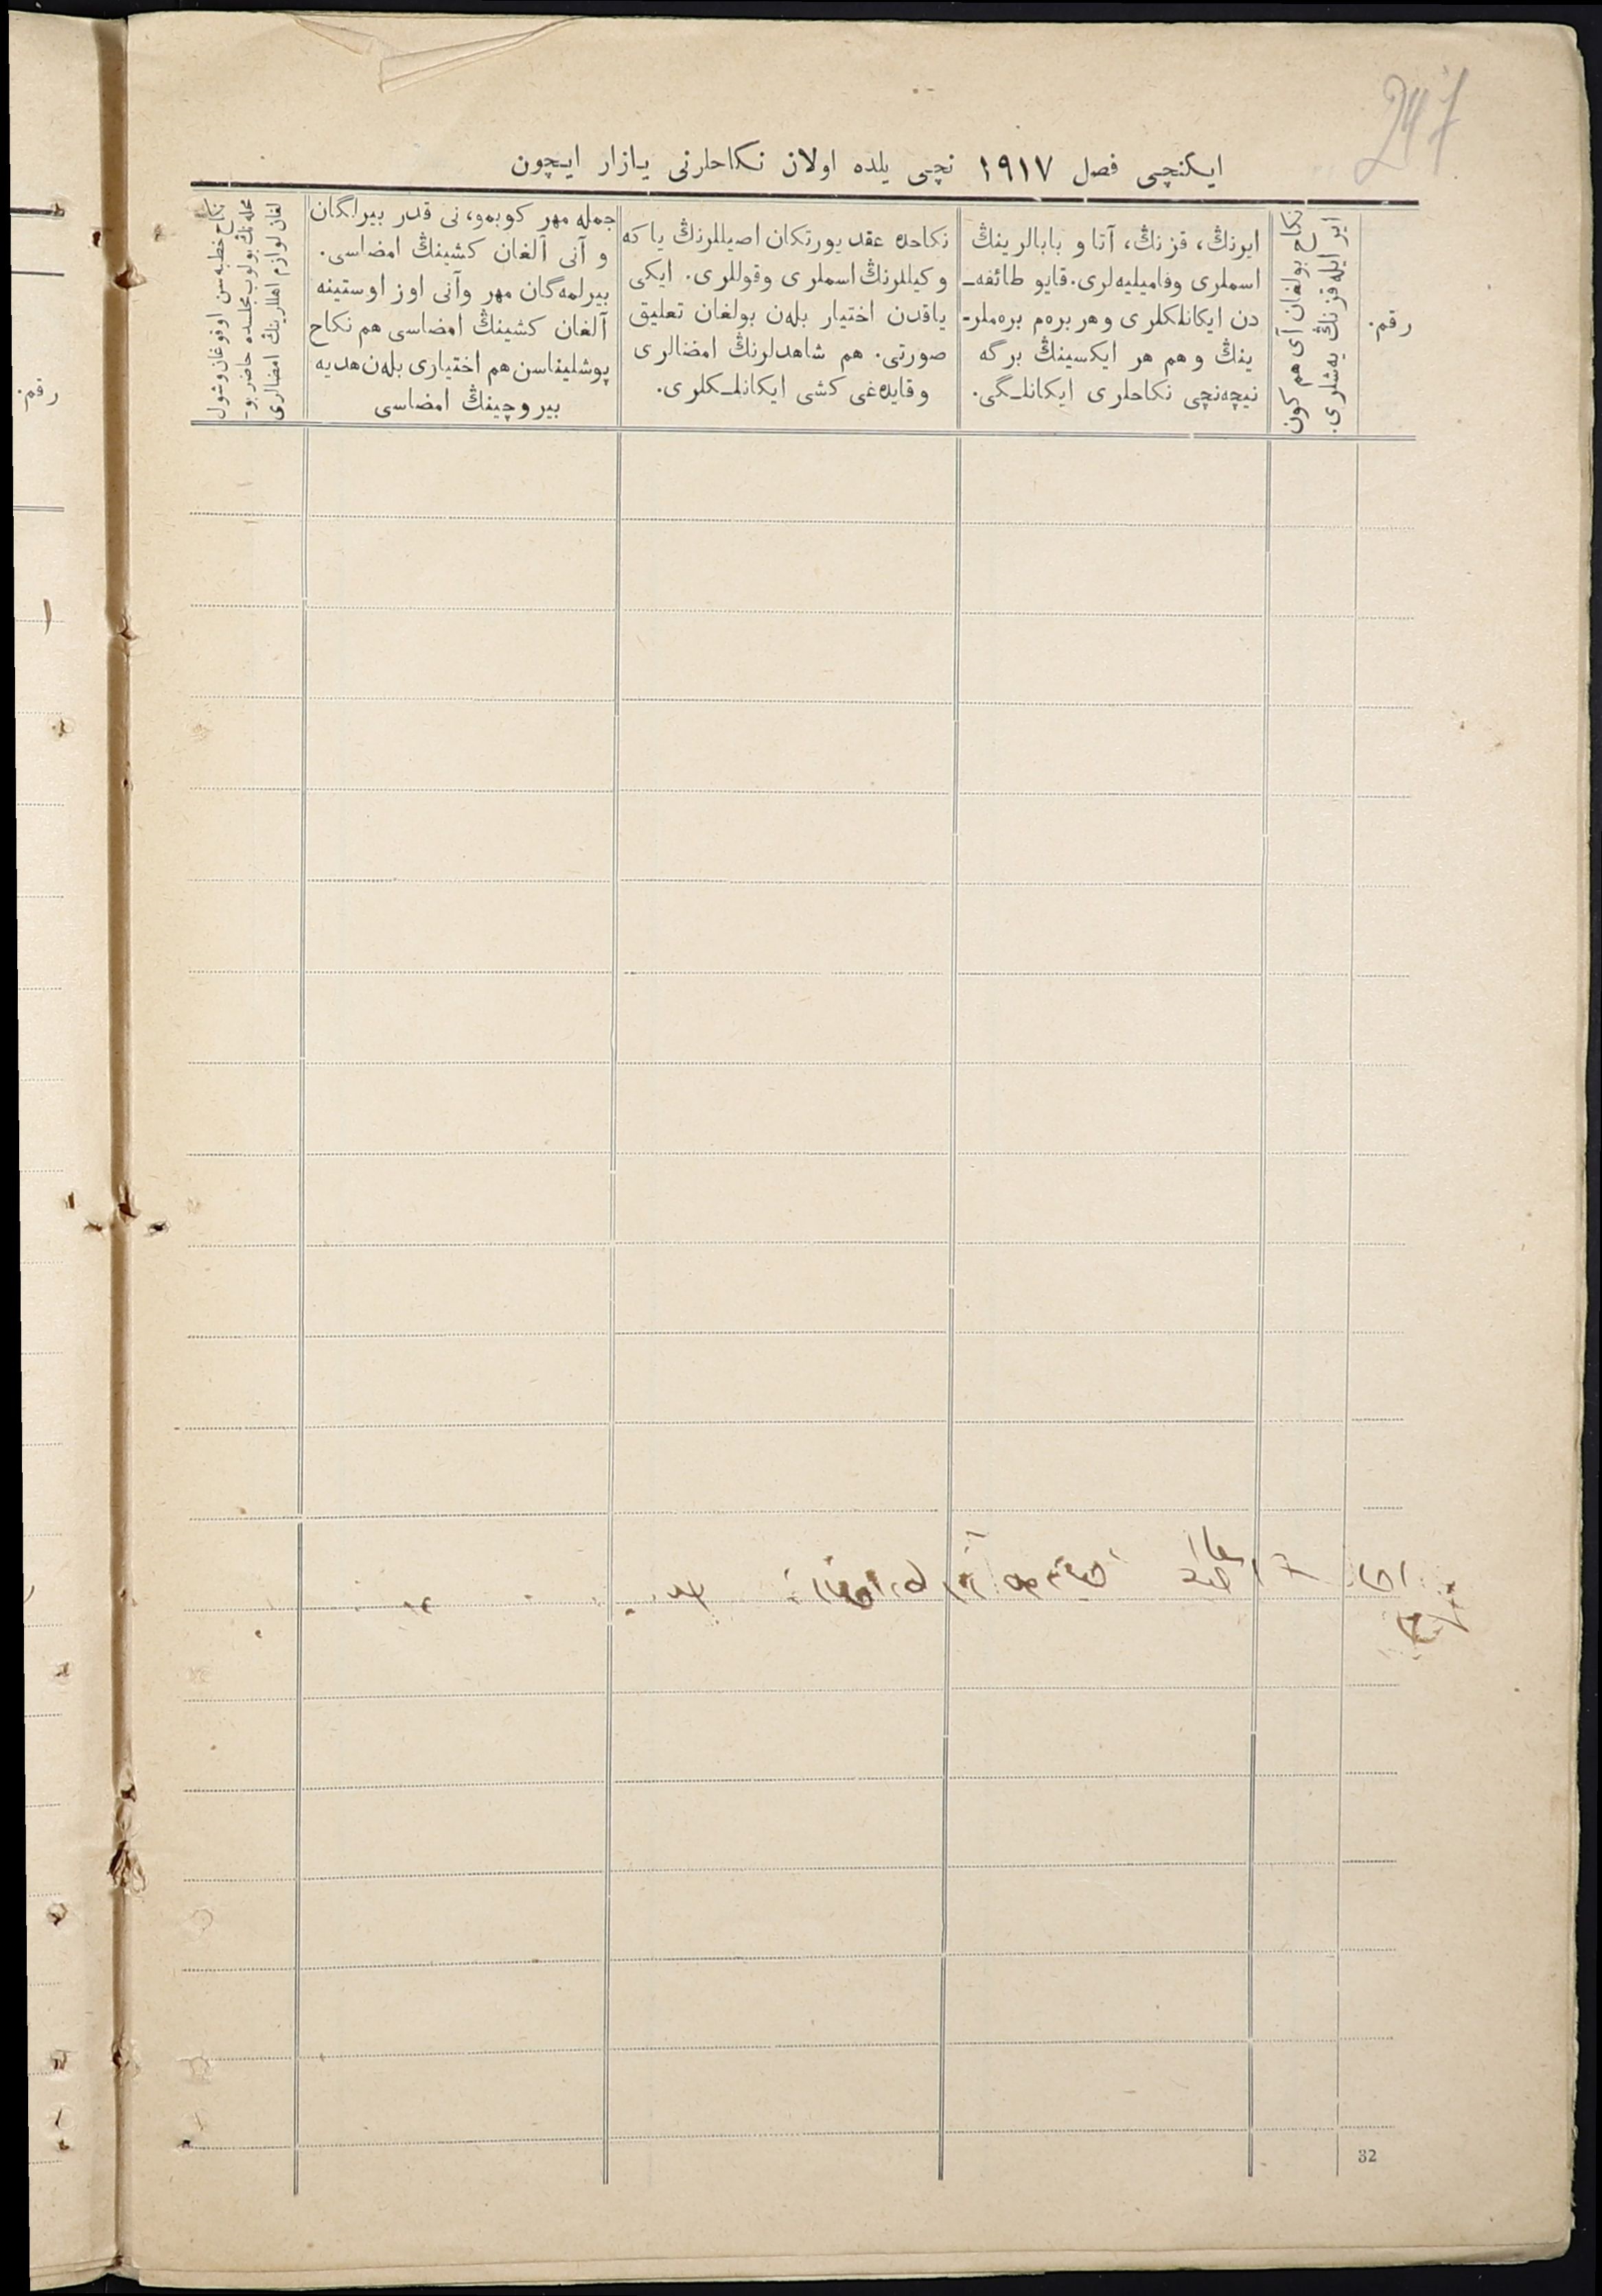 247
ایکنچی فصل ۱۹۱۷ نچی یلده اولان نکاحلرنی یازار ایچون
رقم.
ایر ایله قزنڭ یه‌شلری.
نکاح بولغان آی هم کون
ایرنڭ، قزنڭ، آتا و بابالرینڭ
اسملری وفامیلیه‌لری. قایو طائفه‌ـ
دن ایکانلکلری وهر بره‌م بره‌ملرـ
ینڭ وهم هر ایکسینڭ برگه
نیچه‌نچی نکاحلری ایکانلـگی.
نکاحده عقد یورتکان اصیللرنڭ یا که
وکیللرنڭ اسملری وقوللری. ایکی
یاقدن اختیار بله‌ن بولغان تعلیق
صورتی. هم شاهدلرنڭ امضالری
وقایده‌غی کشی ایکانلـکلری.
جمله مهر کوبمو، نی قدر بیرلگان
و آنی آلغان کشینڭ امضاسی.
بیرلمه‌گان مهر وآنی اوز اوستینه
آلغان کشینڭ امضاسی هم نکاح
پوشلیناسن هم اختیاری بله‌ن هدیه
بیروچینڭ امضاسی
نکاح خطبه‌سن اوقوغان وشول
محله‌نڭ بولوب مجلسده حاضر بوـ
لغان لوازم اهللرینڭ امضالری
رقم.
32